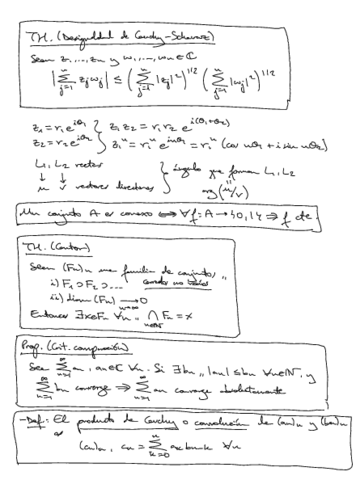 TH. (Desigualdad de Cauchy-Schwarz)
Sean z₁,...,zₙ y w₁,...,wₙ∈ℂ
|∑ⱼ₌₁ⁿ zⱼwⱼ| ≤ (∑ⱼ₌₁ⁿ |zⱼ|²)^{1/2} (∑ⱼ₌₁ⁿ |wⱼ|²)^{1/2}
z₁=r₁e^{iθ₁} } z₁z₂=r₁r₂ e^{i(θ₁+θ₂)}
z₂=r₂e^{iθ₂} } z₁ⁿ=r₁ⁿ e^{inθ₁}=r₁ⁿ (cos nθ₁+i sen nθ₁)
L₁, L₂ rectas } ángulo que forman L₁, L₂
↓ ↓
μ v vectores directores } arg(μ/v)
Un conjunto A es conexo ⟺ ∀f:A→{0,1} ⇒ f cte
TH. (Cantor)
Sean (Fₙ)ₙ una familia de conjuntos
cerrados no vacíos
i) F₁⊃F₂⊃...
ii) diam(Fₙ) →ₙ→∞ 0
Entonces ∃x∈Fₙ ∀n, ⋂ₙ∈ℕ Fₙ=x
Prop. (Crit. comparación)
Sea ∑ₙ₌₁^∞ aₙ, aₙ∈ℂ ∀n. Si ∃bₙ, |aₙ|≤bₙ ∀n∈ℕ, y
∑ₙ₌₁^∞ bₙ converge ⇒ ∑ₙ₌₁^∞ aₙ converge absolutamente
-Def: El producto de Cauchy o convolución de (aₙ)ₙ y (bₙ)ₙ
es (cₙ)ₙ, cₙ=∑ₖ₌₀ⁿ aₖbₙ₋ₖ ∀n